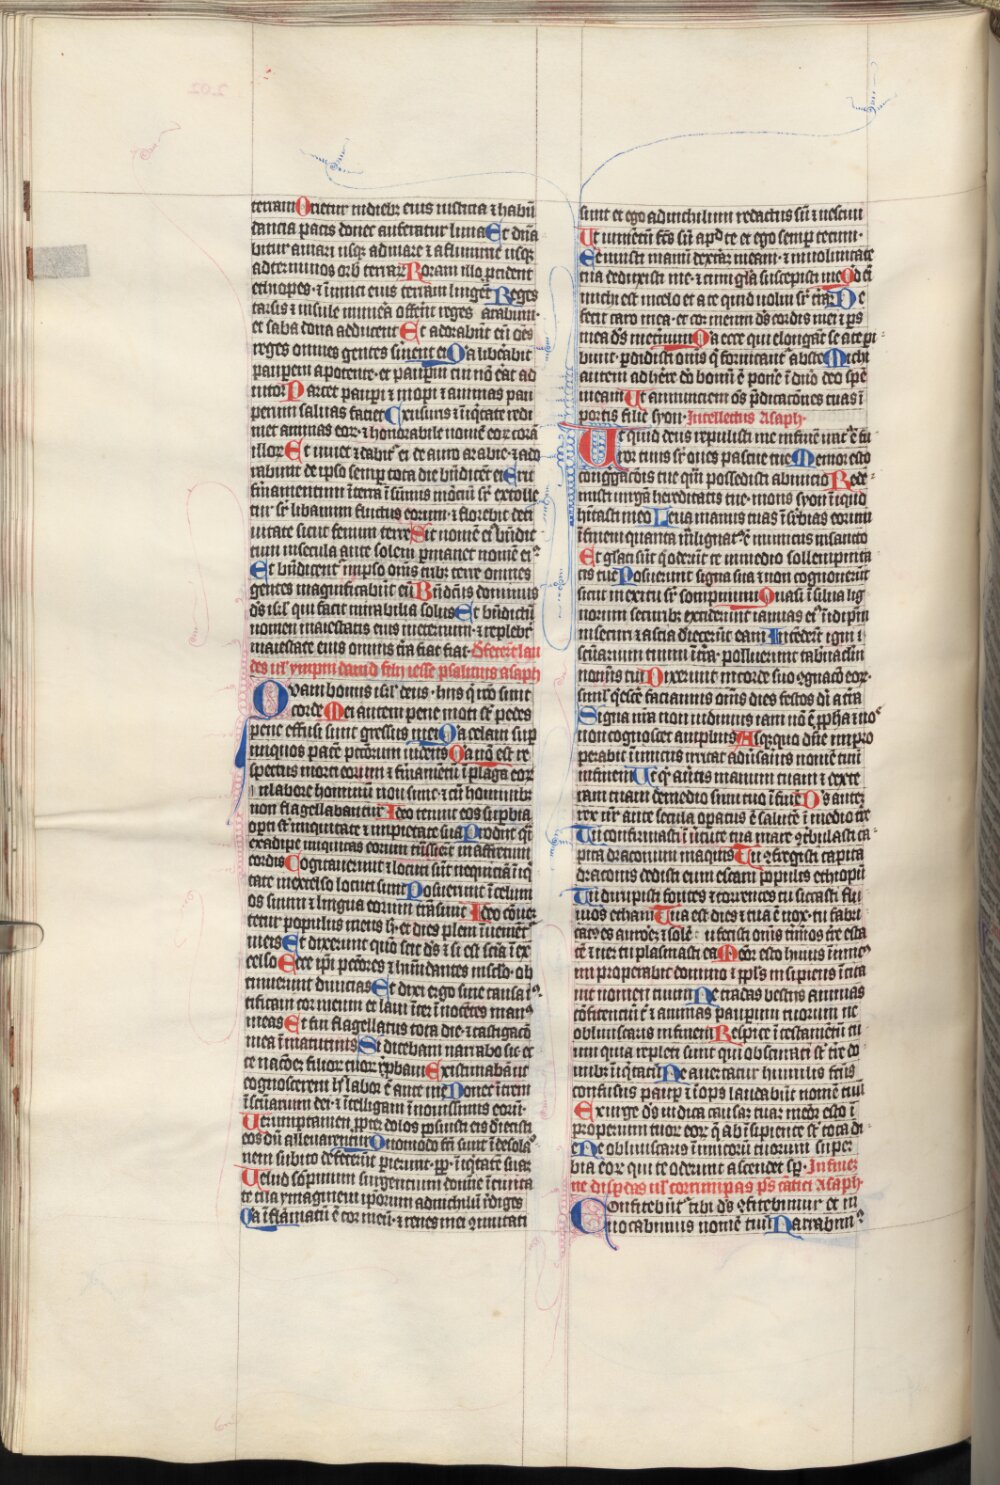 terram Orietur in dieb; eius iusticia ⁊ habūd
tancia pacis donec auferatur luna Et dn̄a
bitur a mari usq; ad mare ⁊ a flumine usq;
ad terminos orb̄ terrar̄ Coram illo ꝓcident
ethyopes· ⁊ inimici eius terram lingēt Reges
tarsis ⁊ insule munera offerēt reges arabum·
et saba dona adducent Et adorabūt eū oēs
reges omnes gentes seruient ei Q̄a liberabit
pauperem a potente· et pauꝑem cui nō erat ad
iutor Parcet pauꝑi ⁊ inopi ⁊ animas pau
perum saluas faciet Ex usuris ⁊ iniq̄tate redi
met animas eor;· ⁊ honorabile nomē eor; corā
illo Et uiuet ⁊ dabit̄ ei de auro arabie· ⁊ ado
rabunt de ipso semꝑ tota die bn̄dicēt ei Erit
firmamentum ī terra ī sūmis mōcium sr̄ extolle
tur sr̄ libanum fructus eorum· ⁊ florebūt de ci
uitate sicut fenum terre Sit nomē eī bn̄dic̄
tum in secula ante solem ꝑmanet nomē eī
Et bn̄dicent̄ in ipso om̄s trib; terre omnes
gentes magnificabūt eū Bn̄dictus dominus
dś isr̄l qui facit mirabilia solus Et bn̄dictū
nomen maiestatis eius in eternum· ⁊ replebit̄
maiestate eius omnis t̄ra fiat fiat· Defecerūt lau
des ul̄ ympni dauid filii iesse psalmus asaph
Quam bonus isr̄l deus· hiis q̄ r̄cō sunt
corde Mei autem pene moti sūt pedes
pene effusi sunt gressus mei Q̄a zelaui sup̄
iniquos pacē pctōrum uidens Q̄a nō est re
spectus morti eorum ⁊ firmamentū ī plaga eor;
In labore hominum non sunt· ⁊ cū hominib;
non flagellabuntur Ideo tenuit eos suꝑbia
oꝑti sūt iniquitate ⁊ impietate sua Prodiit q̄si
ex adipe iniquitas eorum trāsierūt in affectum
cordis Cogitauerunt ⁊ locuti sūt nequiciā iniq̄
tate in excelso locuti sunt Posuerunt ī celum
os suum ⁊ lingua eorum trāsiuit Ideo cōuer
tetur populus meus h̄· et dies pleni īuenient̄
in eis Et dixerunt quō scit dś ⁊ si est sciā ī ex
celso Ecce ip̄i pctōres ⁊ hūndantes in sclō· ob
tinuerunt diuicias Et dixi ergo sine causa iꝰ
tificaui cor meum et laui īter īnocētes manꝰ
meas Et fui flagellatus tota die· ⁊ castigacō
mea ī matutinis Si dicebam narrabo sic ec
ce nacōe; filior; tuor; r̄ꝓbaui Existimabā ut
cognoscerem h̄ labor ē ante me Donec ītrem
ī scūarium dei· ⁊ īntelligam ī nouissimis eorū·
Uerumptamen ꝓpter dolos posuisti eis deiecisti
eos dū alleuarentur Quomodo fc̄i sunt ī desola
nem subito defecerūt perierunt· ꝓp̄ īiq̄tatē suā
Uelud sōpnium surgentium domine ī ciuita
te tua ymaginem ip̄orum ad nichilū r̄diges
Q̄a īflāmatū ē cor meū· ⁊ renes mei ꝯmutati
sunt et ego ad nichilum redactus sū ⁊ nesciui
Ut iumētū fc̄s sū apd̄ te et ego semꝑ tecum·
Tenuisti manū dextrā meam· ⁊ in uoluntate
tua deduxisti me· ⁊ cum gl̄a suscepisti me Qd̄ eī
michi est in celo et a te quid uolui sr̄ t̄rā De
fecit caro mea· et cor meum dś cordis mei ⁊ ꝑs
mea dś in eternum Q̄a ecce qui elongāt se a te ꝑi
bunt· ꝑdidisti om̄s q̄ fornicant̄ abs te Michi
autem adhere deo bonū ē pone ī dn̄o deo spē
meam Ut annunciem om̄s p̄dicacōnes tuas ī
portis filie syon· Intellectus Asaph·
Ut quid deus reppulisti me in finē irat̄ ē fu
ror tuus sr̄ oues pascue tue Memor esto
congregacōis tue quā possedisti ab inicio Rede
misti uirgā hereditatis tue· mons syon ī quo
hītasti in eo Leua manus tuas ī suꝑbias eorum
ī finem quanta malignatꝰ ē inimicus in sancto
Et gl̄iati sūt q̄ oderūt te in medio sollempnita
tis tue Posuerunt signa sua ⁊ non cognouerūt
sicut in exitu sr̄ sompnium Quasi ī silua lig
norum securib; exciderunt ianuas eī ī idipm̄
in securi ⁊ ascia deiecerūt eam Incēderūt igni ī
scūarium tuum ī t̄ra· polluerunt tab̄naclm̄
nominis tui Dixerunt in corde suo ꝯgnacō eor;·
siml̄ q̄escē faciamus om̄s dies festos dī a t̄ra
Signa n̄ra non uidimus iam nō ē ꝓpha ⁊ nos
non cognoscet amplius Usq;quo dn̄e impro
perabit inimicus irritat aduersarius nomē tuū
in finem Ut q̄ auertis manum tuam ⁊ dexte
ram tuam de medio sinu tuo ī finē Dś autē
rex n̄r ante secula oꝑatus ē salutē ī medio t̄re
Tu confirmasti ī uirtute tua mare ꝯt̄bulasti ca
pita draconum in aquis Tu ꝯfregisti capita
draconis dedisti eum escam populis ethiopū
Tu dirupisti fontes ⁊ torrentes tu siccasti flu
uios etham Tua est dies ⁊ tua ē nox· tu fabri
catus es aurorā ⁊ solē Tu fecisti om̄s t̄minos t̄re esta
tē ⁊ uer tu plasmasti ea Memor esto huius inimic
us improperabit domino ⁊ ppl̄s insipiens ī cita
uit nomen tuum Ne tradas bestiis animas
cōfitentium t̄ ⁊ animas pauꝑum tuorum ne
obliuiscaris in finem Respice ī testamentū tu
um quia repleti sunt qui obscurati sūt t̄re do
mib; īiq̄tatū Ne auertatur humilis fc̄us
confusus pauꝑ ⁊ īops laudabūt nomē tuū
Exurge dś iudica causā tuā memor esto ī
properiorum tuor; eor; q̄ ab īsipiente sūt tota di
e Ne obliuiscaris inimicorū tuorum super
bia eor; qui te oderunt ascendit sp̄· In fine;
ne disperdas ul̄ corrumpas ps̄ cātici Asaph·
Confitebim̄ tibi dś ꝯfitebimur et in
uocabimus nomē tuū Narrabim̄